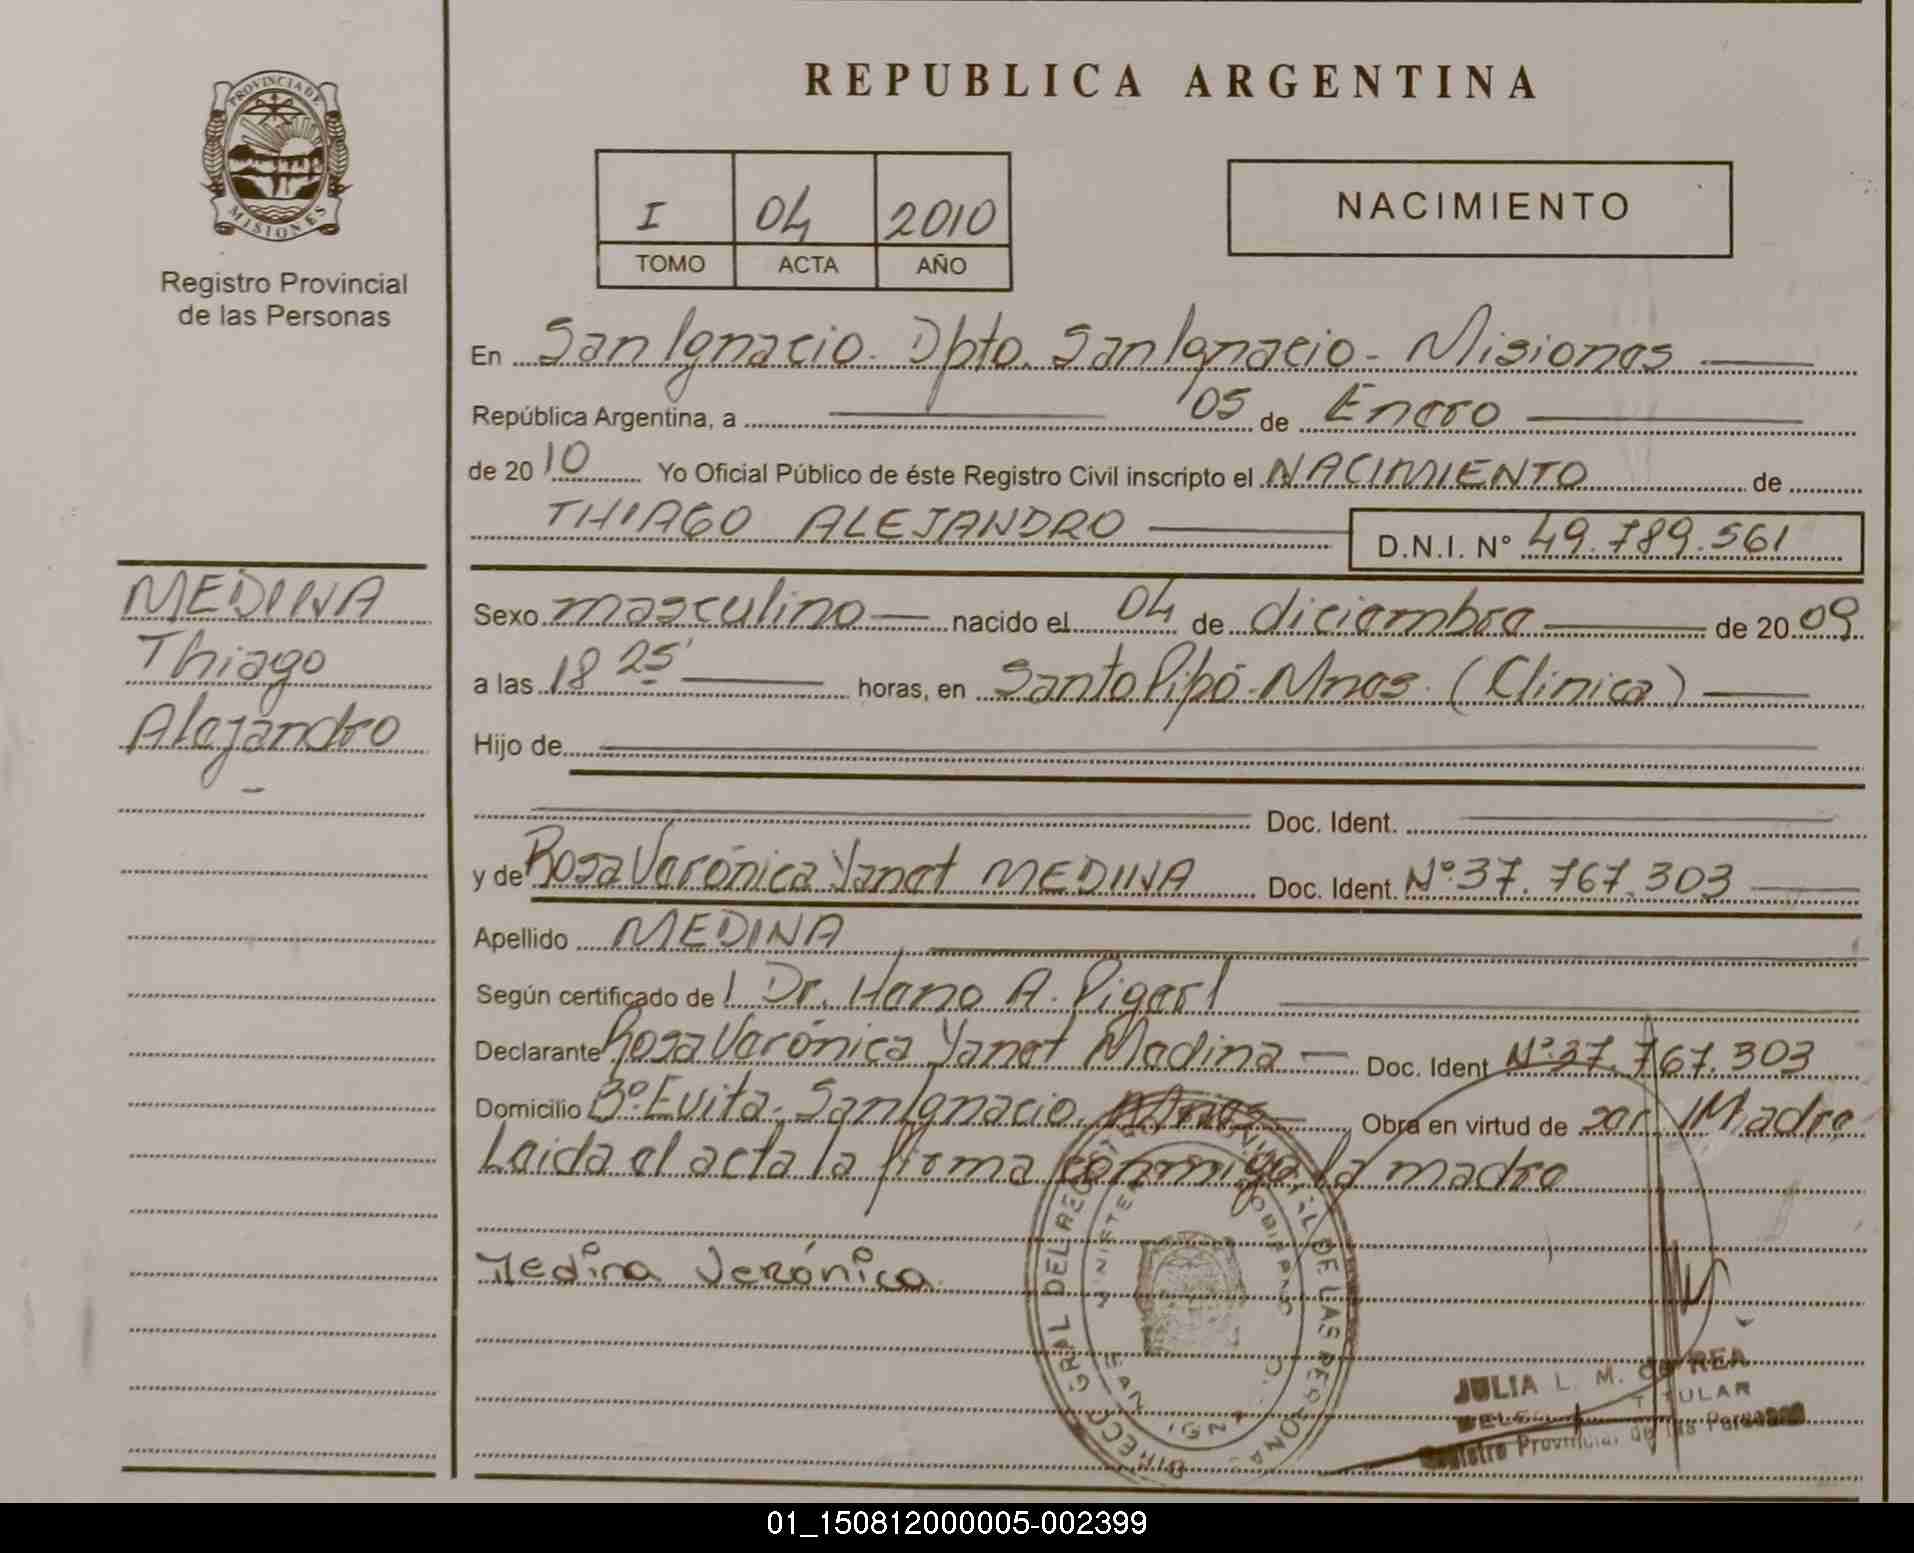 REPUBLICA ARGENTINA
PROVINCIA DE
MISIONES
Registro Provincial
de las Personas
I 04 2010
TOMO ACTA AÑO
NACIMIENTO
En San Ignacio. Dpto. San Ignacio - Misiones
República Argentina, a 05 de Enero
de 2010 Yo Oficial Público de éste Registro Civil inscripto el NACIMIENTO de
THIAGO ALEJANDRO D.N.I. Nº 49.789.561
MEDINA
Thiago
Alejandro
Sexo masculino nacido el 04 de diciembre de 2009
a las 18 25' horas, en Santo Pipó - Mnes. (Clínica)
Hijo de
Doc. Ident.
y de Rosa Verónica Yanet MEDINA Doc. Ident. Nº 37.767.303
Apellido MEDINA
Según certificado del Dr. Hano A.
Declarante Rosa Verónica Yanet Medina Doc. Ident Nº 37.767.303
Domicilio Bº Evita. San Ignacio. Mnes Obra en virtud de ser Madre
Leida el acta la firma conmigo la madre
Medina Verónica
JULIA L. M. de REA
TITULAR
Registro Provincial de las Personas
01_150812000005-002399